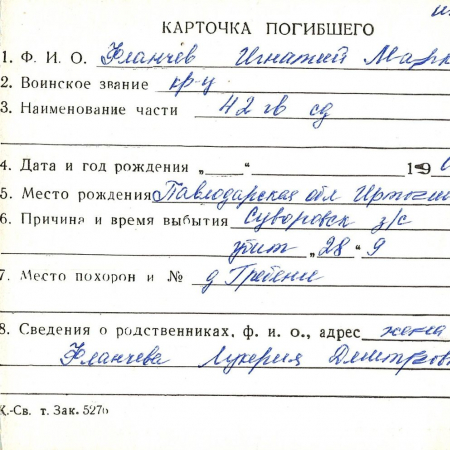 КАРТОЧКА ПОГИБШЕГО
1. Ф. И. О. Фланчев Игнатий Марк
2. Воинское звание кр-ц
3. Наименование части 42 гв сд
4. Дата и год рождения „ “ 190
5. Место рождения Павлодарская обл Иртыш
6. Причина и время выбытия Суворовск з/с
убит „28“ 9
7. Место похорон и № д Гребени
8. Сведения о родственниках, ф. и. о., адрес жена
Фланчева Лукерия Дмитриев
К.-Св. т. Зак. 5276